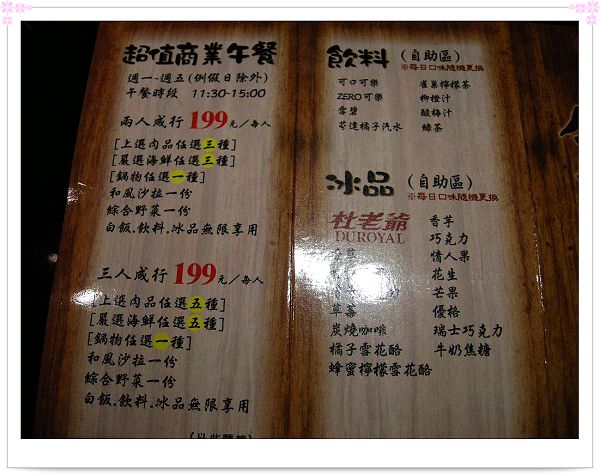 超值商業午餐
週一~週五(例假日除外)
午餐時段 11:30-15:00
兩人成行 199元/每人
[上選肉品任選三種]
[嚴選海鮮任選三種]
[鍋物任選一種]
和風沙拉一份
綜合野菜一份
白飯.飲料.冰品無限享用
三人成行 199元/每人
[上選肉品任選五種]
[嚴選海鮮任選五種]
[鍋物任選一種]
和風沙拉一份
綜合野菜一份
白飯.飲料.冰品無限享用
飲料 (自助區)
※每日口味隨機更換
可口可樂
ZERO可樂
雪碧
芬達橘子汽水
雀巢檸檬茶
柳橙汁
酸梅汁
綠茶
冰品 (自助區)
※每日口味隨機更換
杜老爺
DUROYAL
草莓
炭燒咖啡
橘子雪花酪
蜂蜜檸檬雪花酪
香芋
巧克力
情人果
花生
芒果
優格
瑞士巧克力
牛奶焦糖